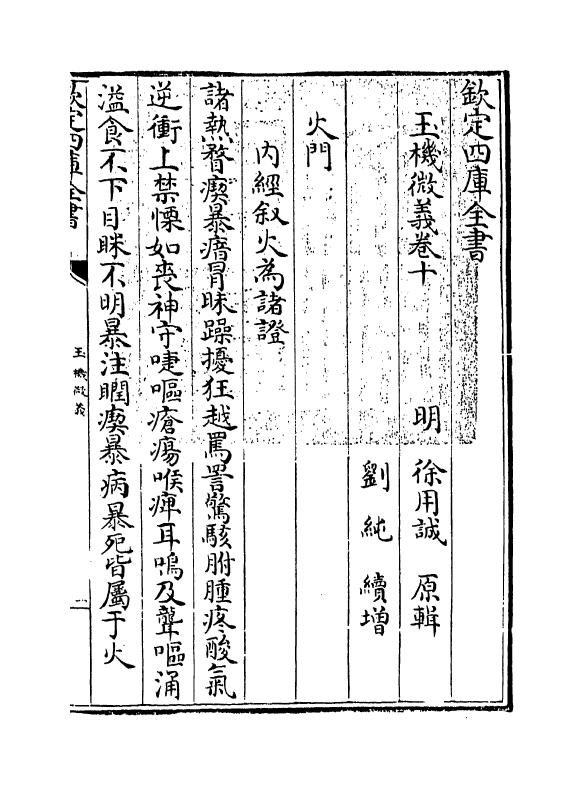 欽定四庫全書
玉機微義卷十
明　徐用誠　原輯
劉　純　續增
火門
內經叙火為諸證
諸熱瞀瘈暴瘖冒昧躁擾狂越罵詈驚駭胕腫疼酸氣
逆衝上禁慄如喪神守啑嘔瘡瘍喉痺耳鳴及聾嘔涌
溢食不下目眛不明暴注瞤瘈暴病暴死皆屬于火
欽定四庫全書
玉機微義
一